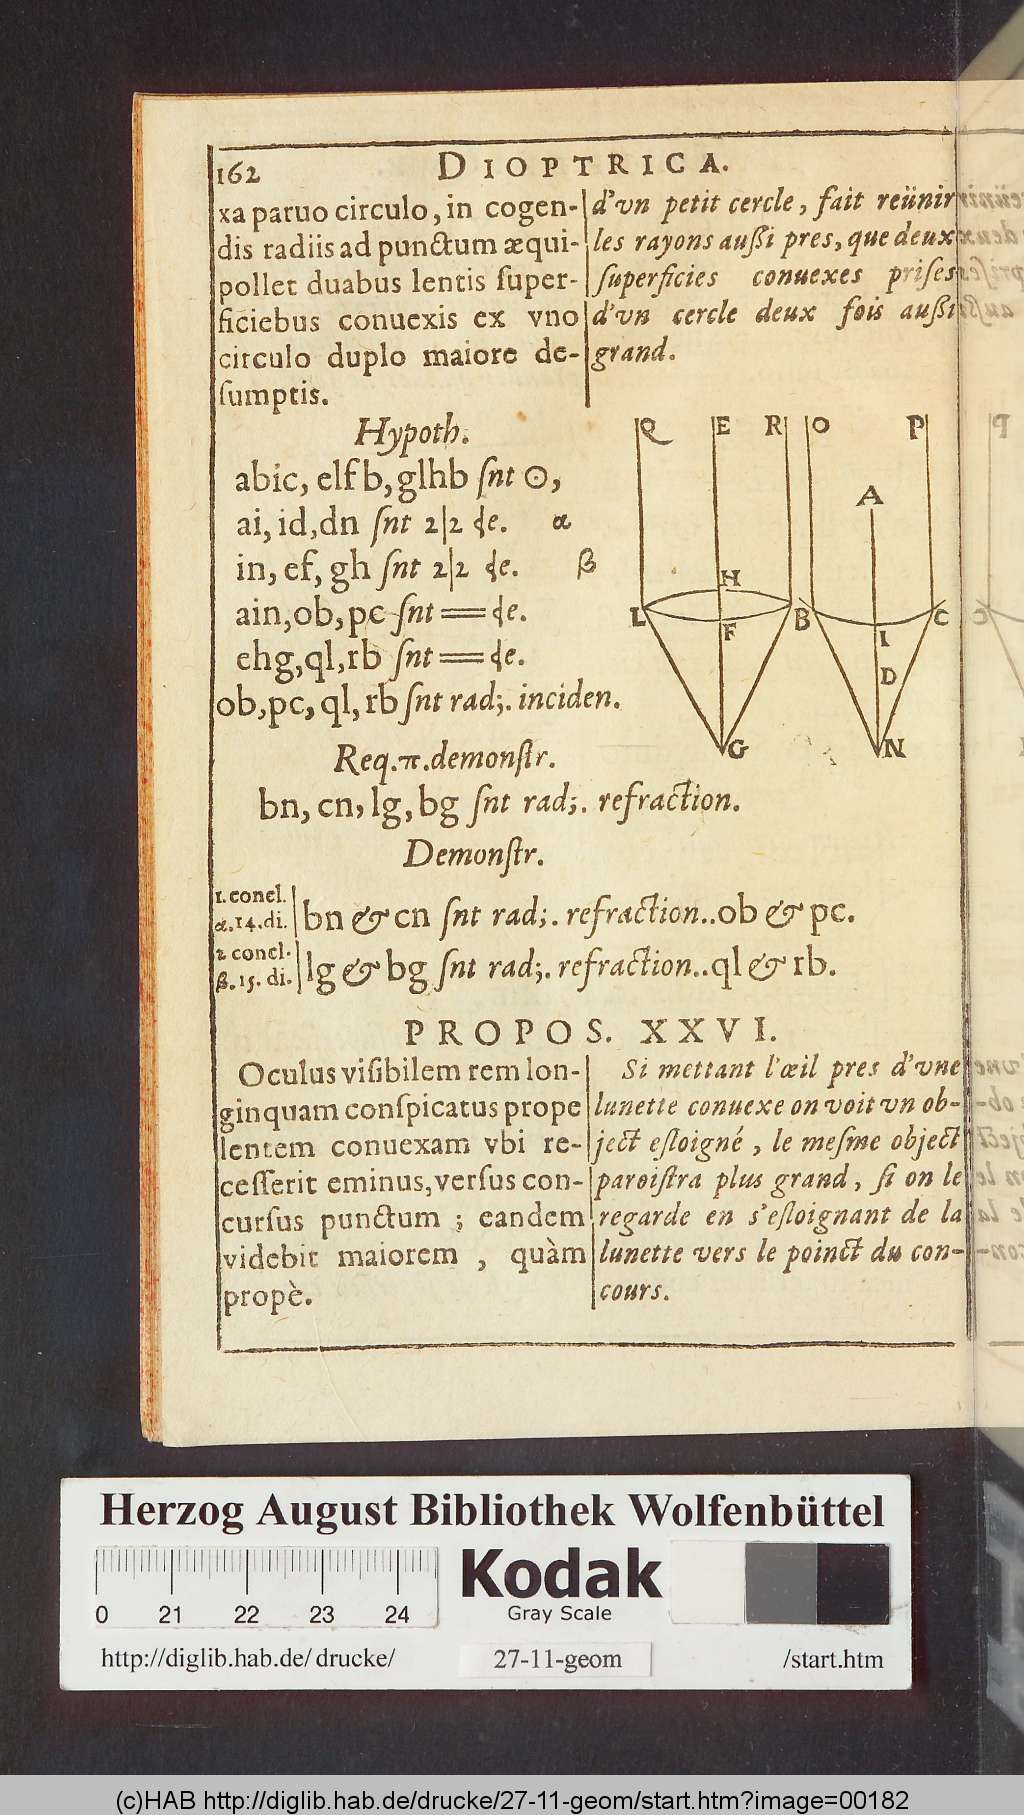 162 DIOPTRICA.
xa paruo circulo, in cogen-
dis radiis ad punctum æqui-
pollet duabus lentis ſuper-
ficiebus conuexis ex vno
circulo duplo maiore de-
ſumptis.
d'vn petit cercle, fait reünir
les rayons außi pres, que deux
ſuperficies conuexes priſes
d'vn cercle deux fois außi
grand.
Hypoth.
abic, elfb, glhb ſnt ⊙,
ai, id, dn ſnt 2|2 de. α
in, ef, gh ſnt 2|2 de. β
ain, ob, pc ſnt == de.
ehg, ql, rb ſnt == de.
ob, pc, ql, rb ſnt rad;. inciden.
Q E R O P
A
H
L F B I C
D
G N
Req. π. demonſtr.
bn, cn, lg, bg ſnt rad;. refraction.
Demonſtr.
1. concl.
α. 14. di.
bn & cn ſnt rad;. refraction.. ob & pc.
2 concl.
β. 15. di.
lg & bg ſnt rad;. refraction.. ql & rb.
PROPOS. XXVI.
Oculus viſibilem rem lon-
ginquam conſpicatus prope
lentem conuexam vbi re-
ceſſerit eminus, verſus con-
curſus punctum ; eandem
videbit maiorem , quàm
propè.
Si mettant l'œil pres d'vne
lunette conuexe on voit vn ob-
ject eſloigné , le meſme object
paroiſtra plus grand, ſi on le
regarde en s'eſloignant de la
lunette vers le poinct du con-
cours.
Herzog August Bibliothek Wolfenbüttel
0 21 22 23 24
Kodak
Gray Scale
http://diglib.hab.de/ drucke/ 27-11-geom /start.htm
(c)HAB http://diglib.hab.de/drucke/27-11-geom/start.htm?image=00182